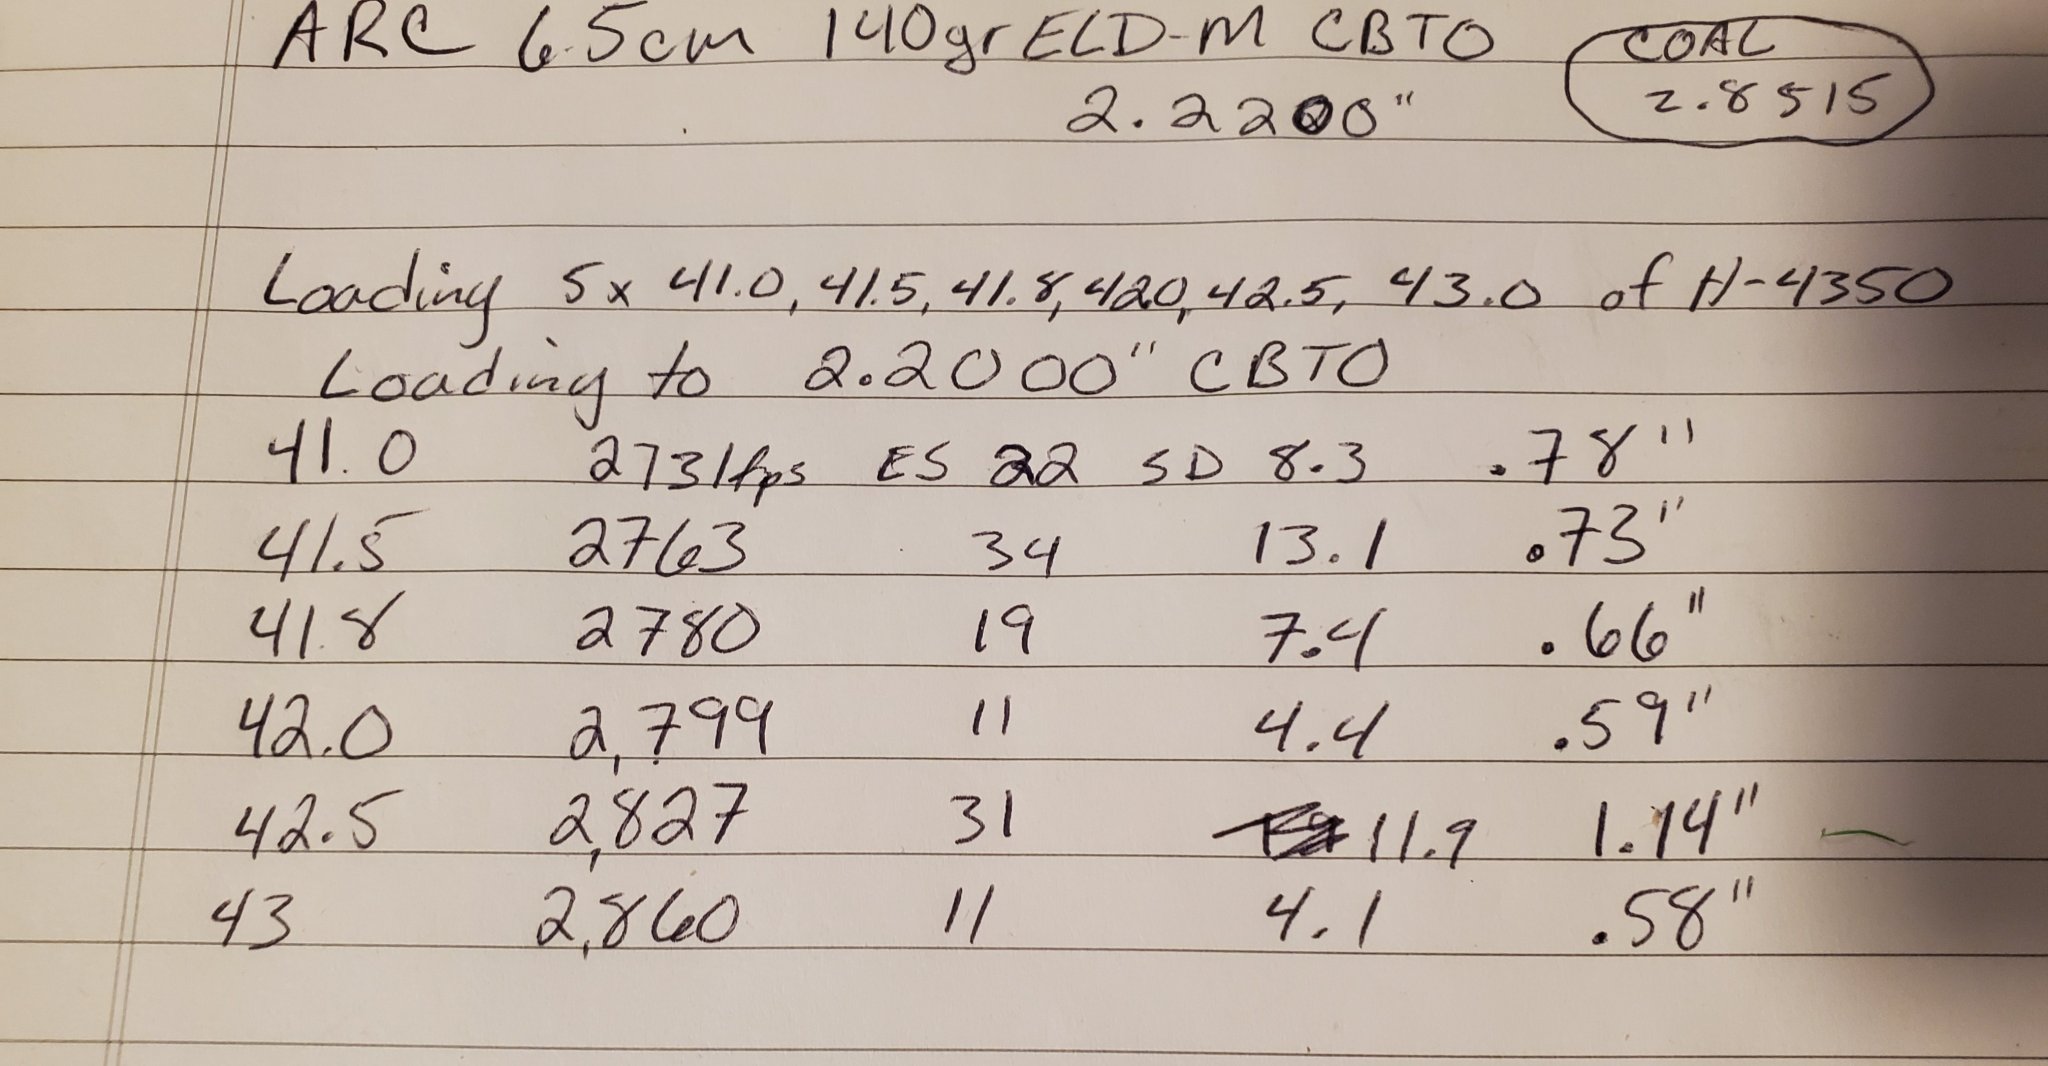 ARC 6.5cm 140gr ELD-M CBTO COAL
2.2200" 2.8515
Loading 5x 41.0, 41.5, 41.8, 42.0, 42.5, 43.0 of H-4350
Loading to 2.2000" CBTO
41.0 2731fps ES 22 SD 8.3 .78"
41.5 2763 34 13.1 .73"
41.8 2780 19 7.4 .66"
42.0 2,799 11 4.4 .59"
42.5 2,827 31 11.9 1.14"
43 2,860 11 4.1 .58"